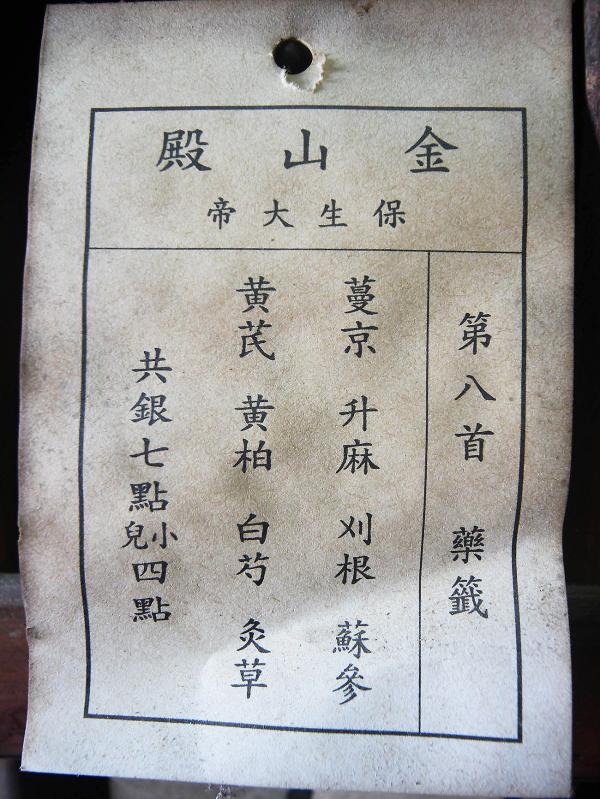 金山殿
保生大帝
第八首 藥籤
蔓京 升麻 刈根 蘇參
黃芪 黃柏 白芍 灸草
共銀七點小兒四點